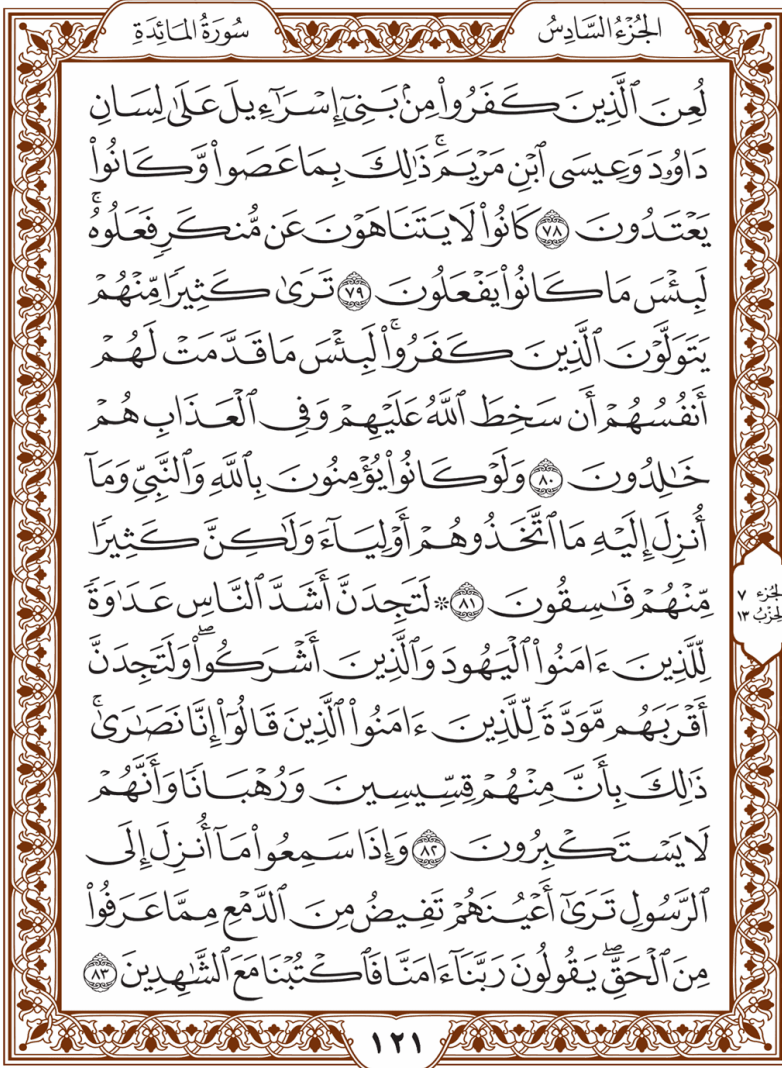 الجُزْءُ السَّادِسُ
سُورَةُ المَائِدَةِ
لُعِنَ ٱلَّذِينَ كَفَرُواْ مِنۢ بَنِيٓ إِسْرَـٰٓءِيلَ عَلَىٰ لِسَانِ
دَاوُۥدَ وَعِيسَى ٱبْنِ مَرْيَمَۚ ذَٰلِكَ بِمَا عَصَواْ وَّكَانُواْ
يَعْتَدُونَ ٧٨ كَانُواْ لَا يَتَنَاهَوْنَ عَن مُّنكَرٖ فَعَلُوهُۚ
لَبِئْسَ مَا كَانُواْ يَفْعَلُونَ ٧٩ تَرَىٰ كَثِيرٗا مِّنْهُمْ
يَتَوَلَّوْنَ ٱلَّذِينَ كَفَرُواْۚ لَبِئْسَ مَا قَدَّمَتْ لَهُمْ
أَنفُسُهُمْ أَن سَخِطَ ٱللَّهُ عَلَيْهِمْ وَفِي ٱلْعَذَابِ هُمْ
خَٰلِدُونَ ٨٠ وَلَوْ كَانُواْ يُؤْمِنُونَ بِٱللَّهِ وَٱلنَّبِيِّ وَمَآ
أُنزِلَ إِلَيْهِ مَا ٱتَّخَذُوهُمْ أَوْلِيَآءَ وَلَٰكِنَّ كَثِيرٗا
مِّنْهُمْ فَٰسِقُونَ ٨١ ۞ لَتَجِدَنَّ أَشَدَّ ٱلنَّاسِ عَدَٰوَةٗ
لِّلَّذِينَ ءَامَنُواْ ٱلْيَهُودَ وَٱلَّذِينَ أَشْرَكُواْۖ وَلَتَجِدَنَّ
أَقْرَبَهُم مَّوَدَّةٗ لِّلَّذِينَ ءَامَنُواْ ٱلَّذِينَ قَالُوٓاْ إِنَّا نَصَٰرَىٰۚ
ذَٰلِكَ بِأَنَّ مِنْهُمْ قِسِّيسِينَ وَرُهْبَانٗا وَأَنَّهُمْ
لَا يَسْتَكْبِرُونَ ٨٢ وَإِذَا سَمِعُواْ مَآ أُنزِلَ إِلَى
ٱلرَّسُولِ تَرَىٰٓ أَعْيُنَهُمْ تَفِيضُ مِنَ ٱلدَّمْعِ مِمَّا عَرَفُواْ
مِنَ ٱلْحَقِّۖ يَقُولُونَ رَبَّنَآ ءَامَنَّا فَٱكْتُبْنَا مَعَ ٱلشَّٰهِدِينَ ٨٣
الجُزْءُ ٧
الحِزْبُ ١٣
١٢١